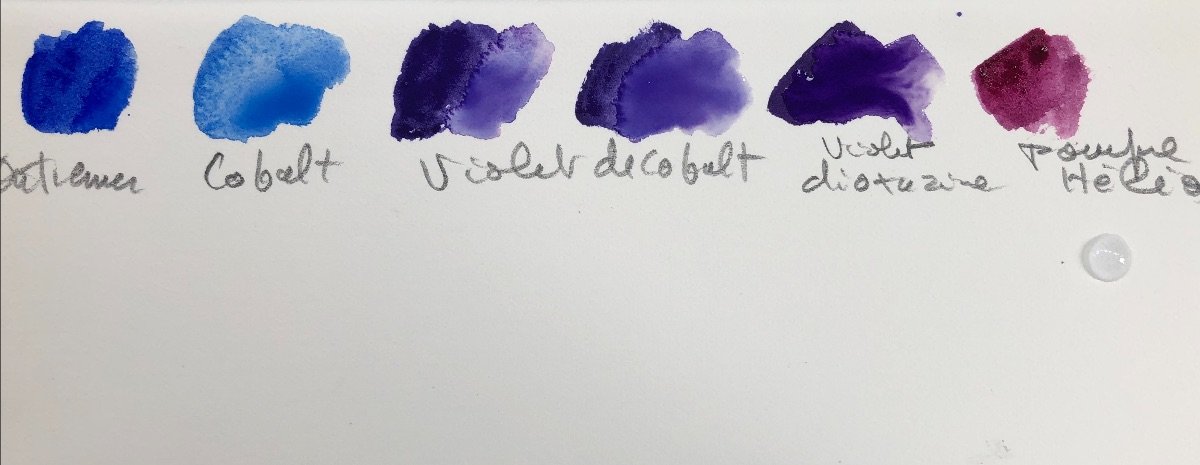 Outremer
Cobalt
Violet de cobalt
Violet
dioxazine
pourpre
Hélio